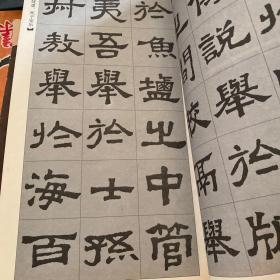 說舉於版
間膠鬲舉
於魚鹽之中管
夷吾舉於士孫
叔敖舉於海百